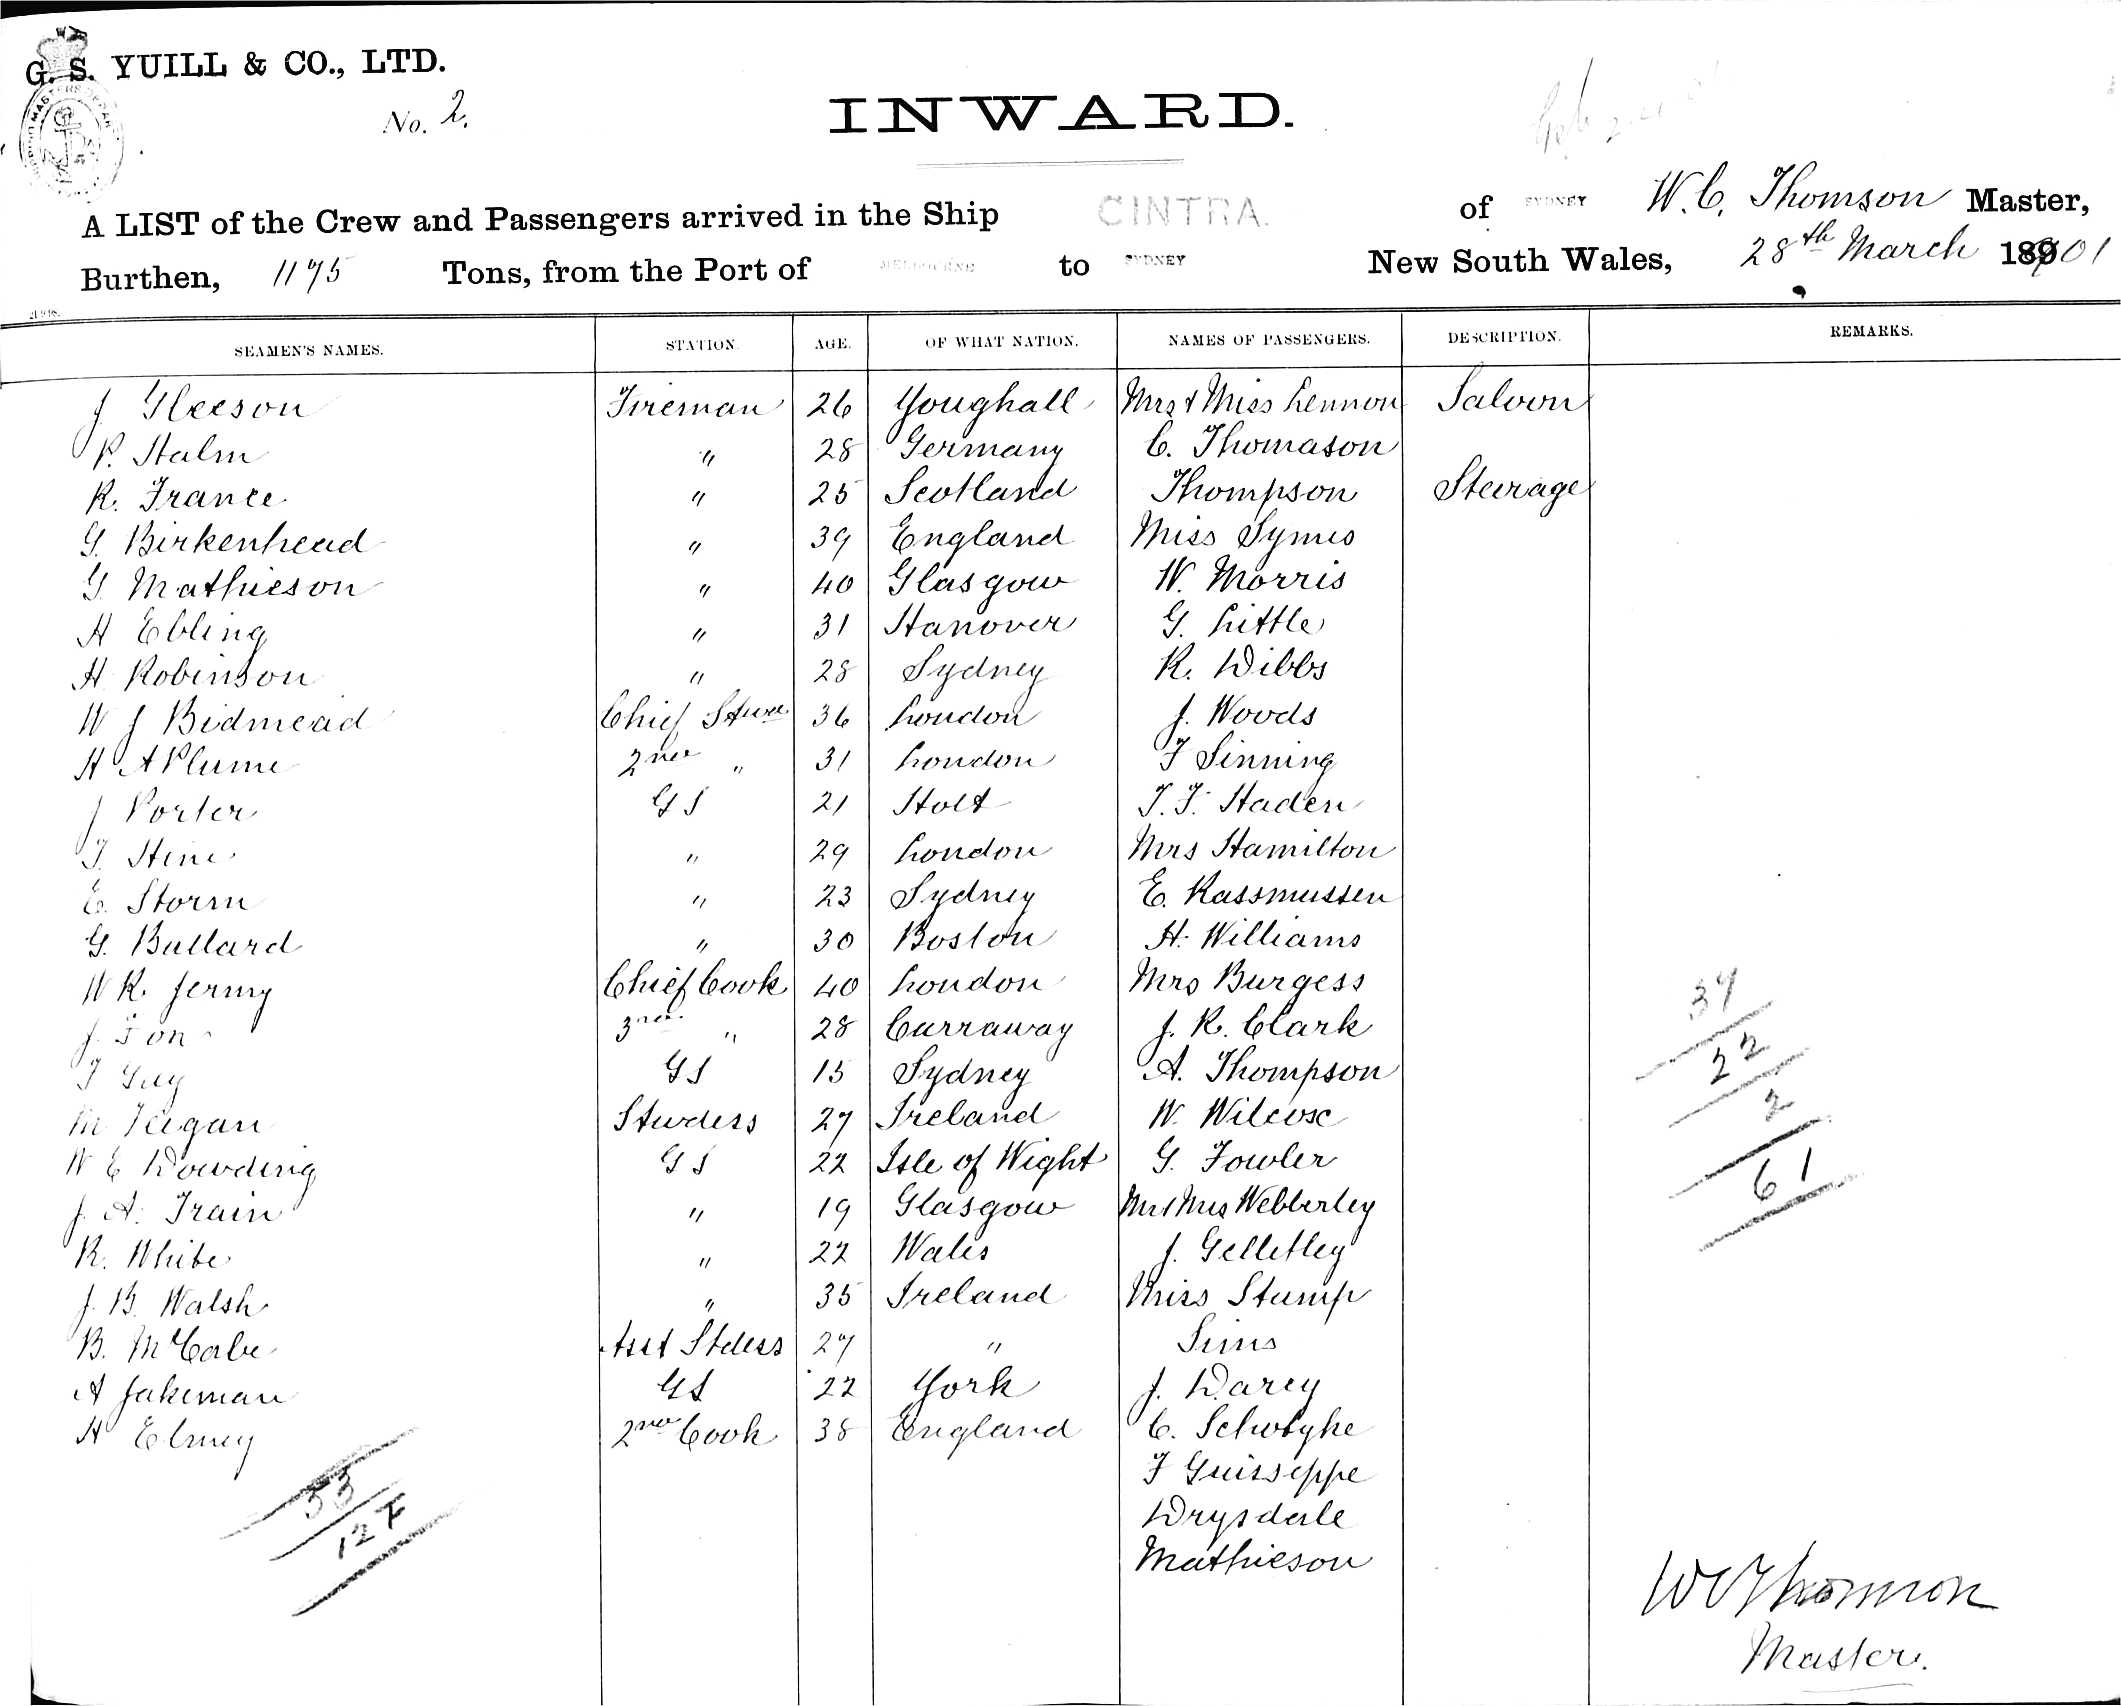 G. S. YUILL & CO., LTD.
No. 2.
INWARD.
A LIST of the Crew and Passengers arrived in the Ship CINTRA. of SYDNEY W. C. Thomson Master,
Burthen, 1175 Tons, from the Port of MELBOURNE to SYDNEY New South Wales, 28th March 1901
SEAMEN'S NAMES. STATION. AGE. OF WHAT NATION. NAMES OF PASSENGERS. DESCRIPTION. REMARKS.
J Gleeson Fireman 26 Youghall Mrs & Miss Lennon Saloon
P. Halm " 28 Germany C. Thomason
R. France " 25 Scotland Thompson Steerage
G. Birkenhead " 39 England Miss Symes
G. Mathieson " 40 Glasgow W. Morris
H Ebling " 31 Hanover G. Little
H Robinson " 28 Sydney R. Dibbs
W J Bidmead Chief 36 London J. Woods
H A Plume 2nd " 31 London F Sinning
J Porter GS 21 Holt T. F. Haden
T. Hine " 29 London Mrs Hamilton
E. Storm " 23 Sydney E. Rassmussen
G. Bullard " 30 Boston H. Williams
W R. Jermy Chief Cook 40 London Mrs Burgess
J. Fon 3rd " 28 Carraway J. R. Clark
T Guy GS 15 Sydney A. Thompson
M Feegan Stwdess 27 Ireland W. Wilcox
W E Dowding GS 22 Isle of Wight G. Fowler
J. A. Train " 19 Glasgow Mr & Mrs Webberley
R. White " 22 Wales J. Gelletley
J. B. Walsh " 35 Ireland Miss Stump
B. McCabe Asst Stdess 27 " Sims
A Jakeman GS 22 York J. Darcy
H Elmey 2nd Cook 38 England C.
F Guisseppe
Drysdale
Mathieson
37
22
2
61
53
127
W C Thomson
Master.